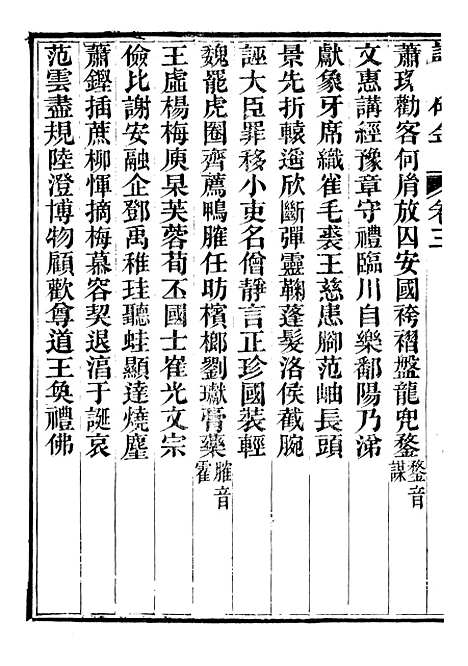 卷三
蕭琛勸客何胤放囚安國袴褶盤龍兜鍪鍪音謀
文惠講經豫章守禮臨川自樂鄱陽乃涕
獻象牙席織雀毛裘王慈患腳范岫長頭
景先折轅遥欣斷彈靈鞠蓬髮洛侯截腕
誣大臣罪移小吏名僧靜言正珍國裝輕
魏罷虎圈齊薦鴨臛任昉檳榔劉瓛膏藥臛音霍
王虛楊梅庾杲芙蓉荀丕國士崔光文宗
儉比謝安融企鄧禹稚珪聽蛙顯達燒麈
蕭鏗插蔗柳惲摘梅慕容契退湻于誕哀
范雲盡規陸澄博物顧歡尊道王奐禮佛